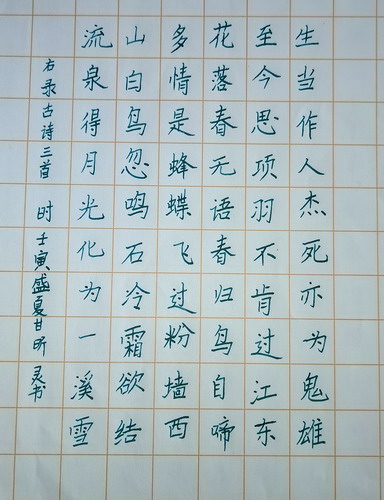 生当作人杰死亦为鬼雄
至今思项羽不肯过江东
花落春无语春归鸟自啼
多情是蜂蝶飞过粉墙西
山白鸟忽鸣石冷霜欲结
流泉得月光化为一溪雪
右录古诗三首 时壬寅盛夏甘昕灵书